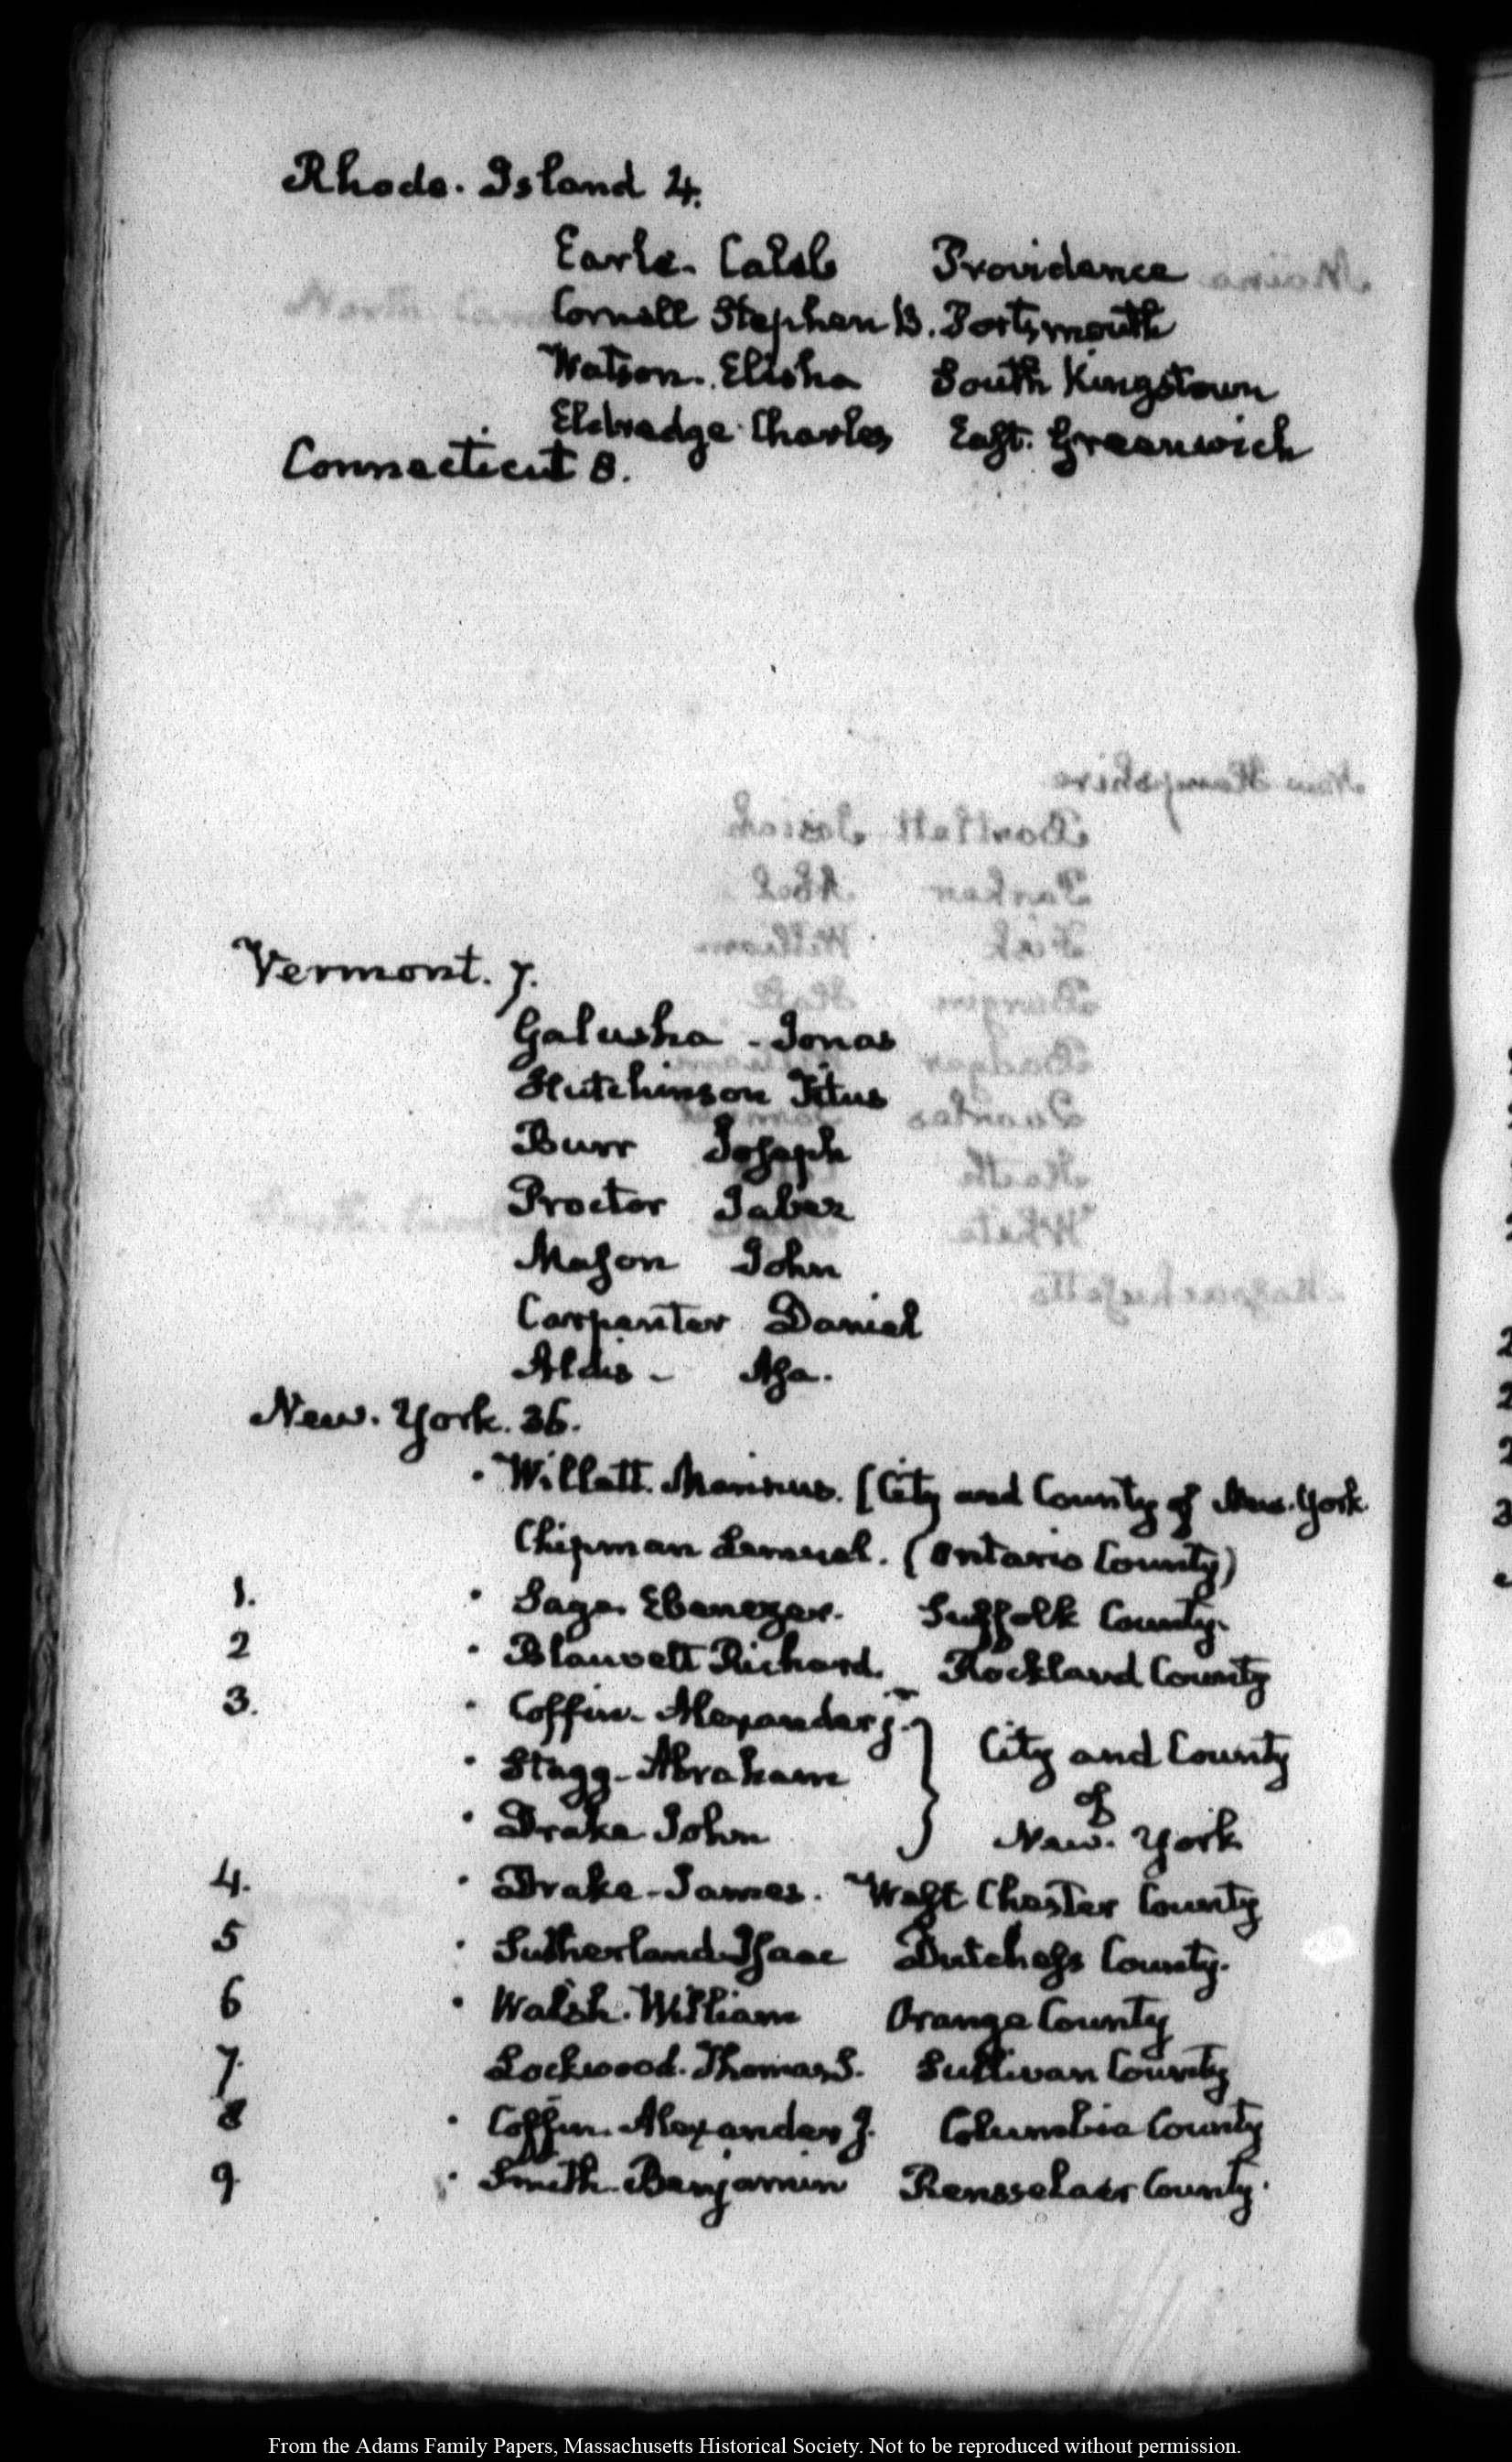 Rhode. Island 4.
Earle. Caleb Providence
Cornell Stephen B. Portsmouth
Watson. Elisha South Kingstown
Eldredge Charles East. Greenwich
Connecticut 8.
Vermont. 7.
Galusha - Jonas
Hutchinson Titus
Burr Joseph
Proctor Jabez
Mason John
Carpenter Daniel
Aldis - Asa.
New. York. 36.
Willett. Marinus. (City and County of New. York
Chipman Lemuel. (Ontario County)
1. Sage. Ebenezer. Suffolk County.
2 Blauvelt Richard. Rockland County
3. Coffin. Alexander j. } City and County
Stagg - Abraham
of
Drake John New. York
4. Drake - James. West Chester County
5 Sutherland Isaac Dutchess County.
6 Walsh. William Orange County
7. Lockwood. Thomas S. Sullivan County
8 Coffin. Alexander J. Columbia County
9. Smith. Benjamin Rensselaer County.
From the Adams Family Papers, Massachusetts Historical Society. Not to be reproduced without permission.